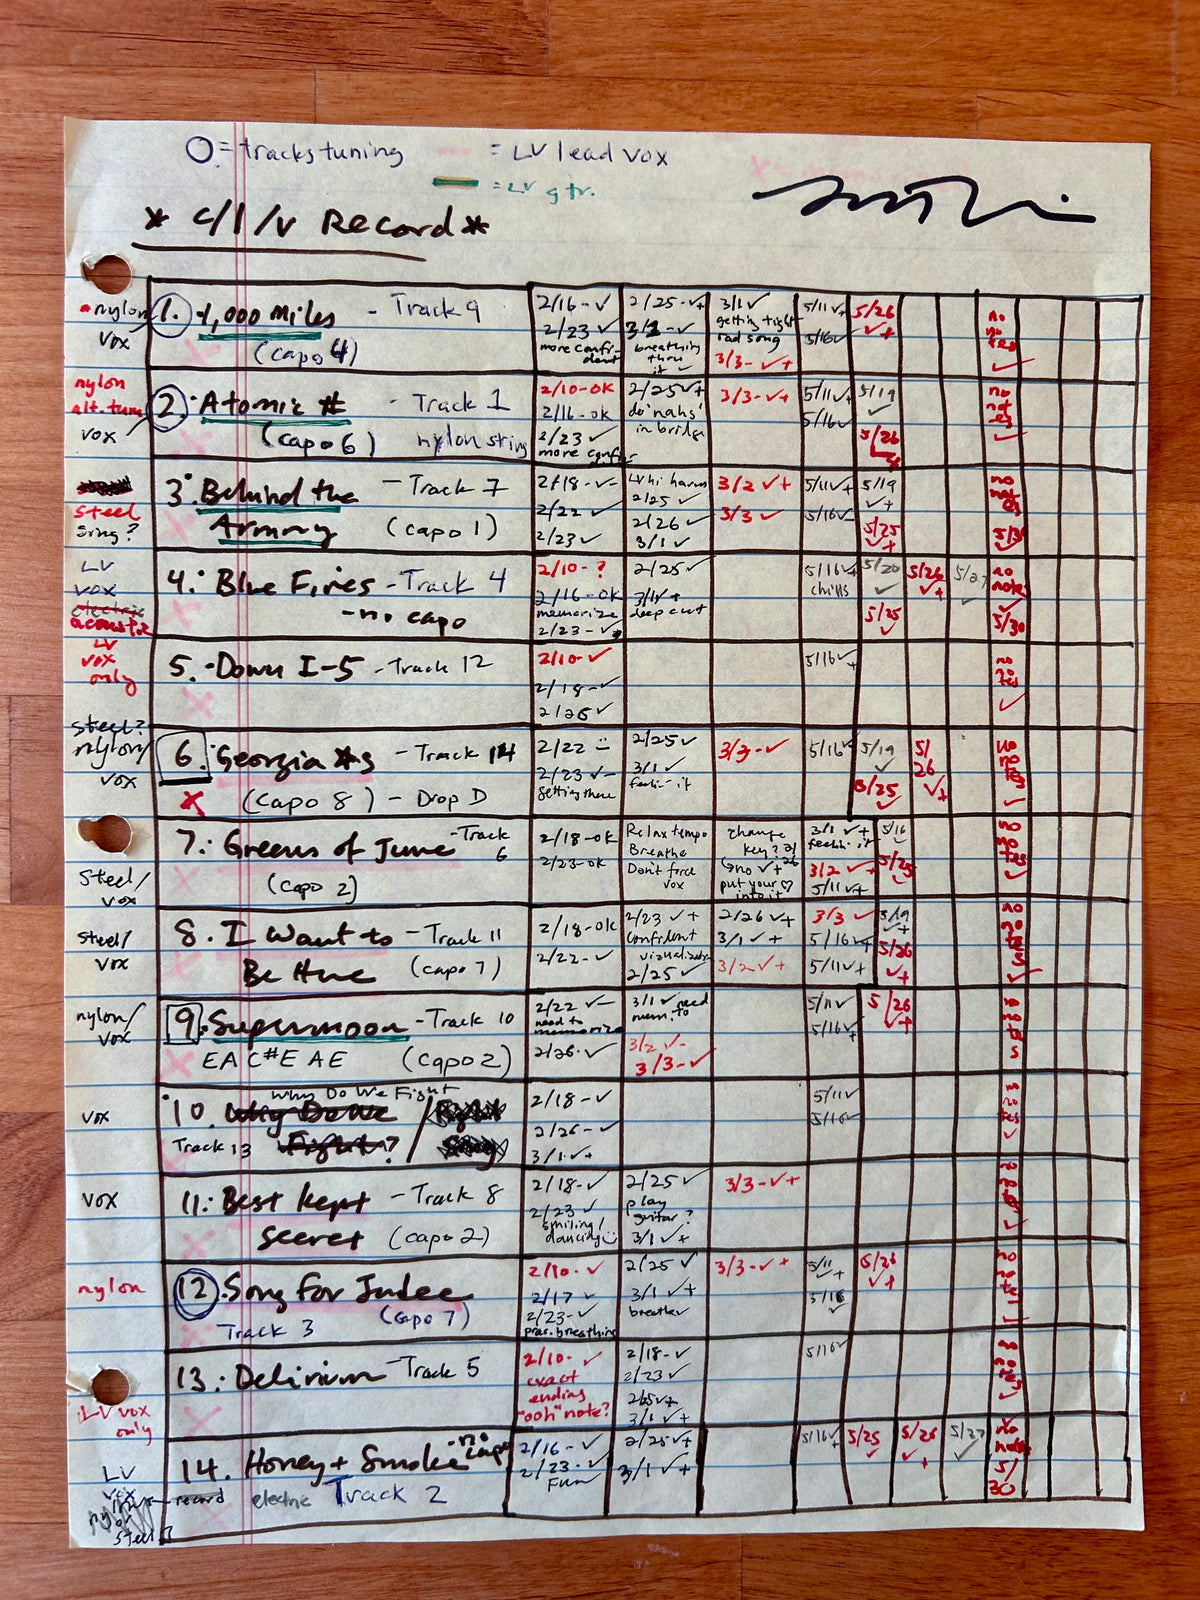 O = tracks tuning
= LV lead vox
= LV gtr.
* c/l/v Record *
nylon
vox
1. 1,000 Miles - Track 9
(capo 4)
2/16 - ✓
2/23 ✓
more confident
2/25 - ✓+
3/1 - ✓
breathing
thru
it ✓
3/1 ✓
getting tight
rad song
3/3 - ✓+
5/11 ✓+
5/16 ✓
5/26
✓+
no
notes
✓
nylon
alt. tune
vox
2. Atomic # - Track 1
(capo 6) nylon string
2/10 - ok
2/16 - ok
2/23 ✓
2/25 ✓+
do 'nahs'
in bridge
3/3 - ✓+
5/11 ✓+
5/16 ✓
5/19
✓
5/26
no
notes
✓
steel
3. Behind the - Track 7
Armory (capo 1)
2/18 - ✓-
2/22 ✓
2/23 ✓
LV hi harm
2/25 ✓
2/26 ✓
3/1 ✓
3/2 ✓+
3/3 ✓
5/11 ✓+
5/16 ✓
5/19
✓+
5/25
✓+
no
notes
LV
vox
electric
acoustic
4. Blue Fires - Track 4
- no capo
2/10 - ?
2/16 - ok
memorize
2/23 - ✓
2/25 ✓
3/1 ✓
deep cut
5/16 ✓+
chills
5/20
✓
5/25
✓
5/26
✓+
5/27
✓
no
notes
✓
5/30
LV
vox
only
5. Down I-5 - Track 12
2/10 - ✓
2/18 - ✓
2/25 ✓
5/16 ✓+
no
notes
✓
steel?
nylon/
vox
6. Georgia #s - Track 14
(capo 8) - Drop D
2/22 :)
2/23 ✓-
getting there
2/25 ✓
3/1 ✓
feelin' it
3/3 - ✓
5/16 ✓
5/19
✓
5/25
✓
5/26
✓+
no
notes
✓
steel/
vox
7. Greens of June - Track 6
(capo 2)
2/18 - ok
2/23 - ok
Relax tempo
Breathe
Don't force
vox
change
key?
no ✓+
put your ♡
into it
3/1 ✓+
feelin' it
3/2 ✓+
5/11 ✓+
5/16
✓
5/25
✓
no
notes
✓
steel/
vox
8. I Want to - Track 11
Be Here (capo 7)
2/18 - ok
2/22 - ✓
2/23 ✓+
confident
2/25 ✓
2/26 ✓+
3/1 ✓+
3/2 ✓+
3/3 ✓
5/16 ✓+
5/11 ✓+
5/19
✓+
5/26
✓+
no
notes
✓
nylon/
vox
9. Supermoon - Track 10
EA C#E AE (capo 2)
2/22 ✓-
need to
memorize
2/26 ✓
3/1 ✓ need
mem. to
3/2 ✓-
3/3 - ✓
5/11 ✓
5/16 ✓
5/26
✓+
no
notes
vox
Why Do We Fight
10. Why Do We
Track 13 Fight? /
2/18 - ✓
2/26 - ✓
3/1 ✓+
5/11 ✓
5/16 ✓
no
notes
✓
vox
11. Best Kept - Track 8
Secret (capo 2)
2/18 - ✓
2/23 ✓
smiling/
dancing :)
2/25 ✓
play
guitar?
3/1 ✓+
3/3 - ✓+
✓
nylon
12. Song For Judee
Track 3 (capo 7)
2/10 - ✓
2/17 - ✓
2/23 - ✓
prac. breathing
2/25 ✓
3/1 ✓+
breathe ✓
3/3 - ✓+
5/11
✓+
5/16
✓
5/26
✓+
no
notes
LV vox
only
13. Delirium - Track 5
2/10 - ✓
exact
ending
"ooh" note?
2/18 - ✓
2/23 ✓
2/25 ✓+
3/1 ✓+
5/16 ✓
no
notes
✓
LV
vox
nylon or
steel?
14. Honey + Smoke - no capo
record electric Track 2
2/16 - ✓
2/23 - ✓
Fun
2/25 ✓+
3/1 ✓+
5/16 ✓+
5/25
✓
5/26
✓+
5/27
✓
no
notes
5/
30